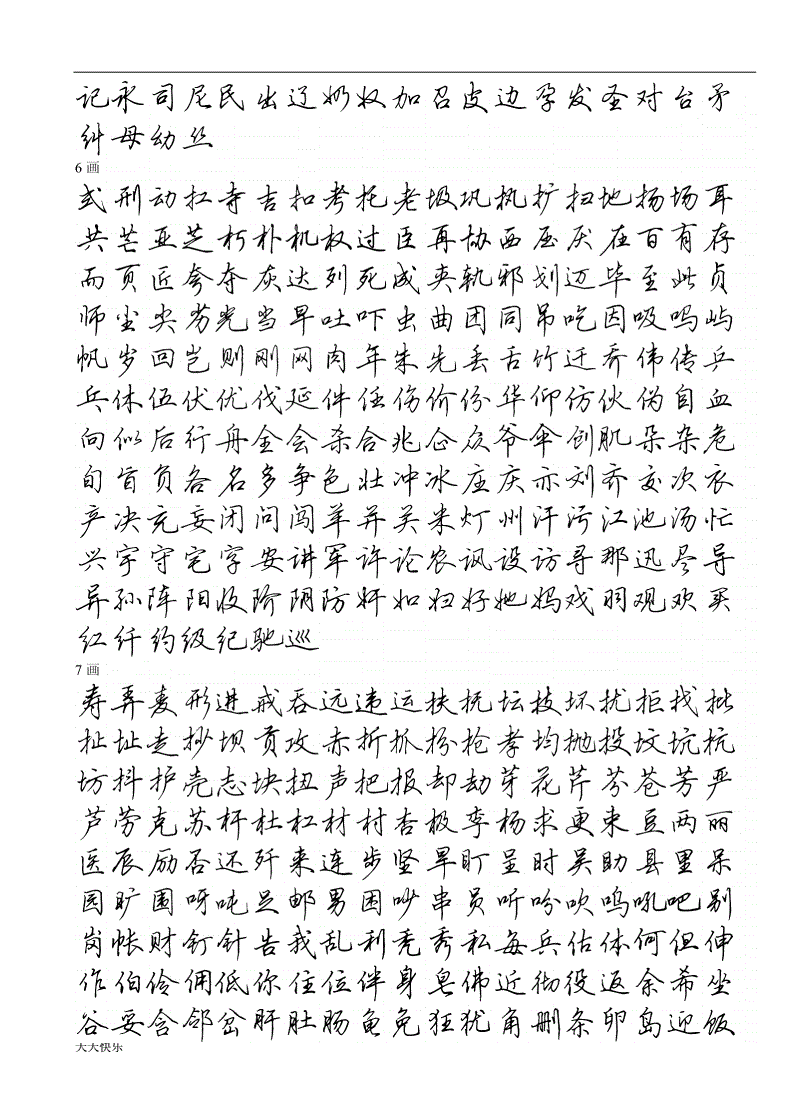 记永司尼民出辽奶奴加召皮边孕发圣对台矛
纠母幼丝
6 画
式刑动扛寺吉扣考托老圾巩执扩扫地扬场耳
共芒亚芝朽朴机权过臣再协西压厌在百有存
而页匠夸夺灰达列死成夹轨邪划迈毕至此贞
师尘尖劣光当早吐吓虫曲团同吊吃因吸吗屿
帆岁回岂则刚网肉年朱先丢舌竹迁乔伟传乒
乓休伍伏优伐延件任伤价份华仰仿伙伪自血
向似后行舟全会杀合兆企众爷伞创肌朵杂危
旬旨负各名多争色壮冲冰庄庆亦刘齐交次衣
产决充妄闭问闯羊并关米灯州汗污江池汤忙
兴宇守宅字安讲军许论农讽设访寻那迅尽导
异孙阵阳收阶阴防奸如妇好她妈戏羽观欢买
红纤约级纪驰巡
7 画
寿弄麦形进戒吞远违运扶抚坛技坏扰拒找批
扯址走抄坝贡攻赤折抓扮抢孝均抛投坟坑抗
坊抖护壳志块扭声把报却劫芽花芹芬苍芳严
芦劳克苏杆杜杠材村杏极李杨求更束豆两丽
医辰励否还歼来连步坚旱盯呈时吴助县里呆
园旷围呀吨足邮男困吵串员听吩吹呜吼吧别
岗帐财钉针告我乱利秃秀私每兵估体何但伸
作伯伶佣低你住位伴身皂佛近彻役返余希坐
谷妥含邻岔肝肚肠龟免狂犹角删条卵岛迎饭
大大快乐